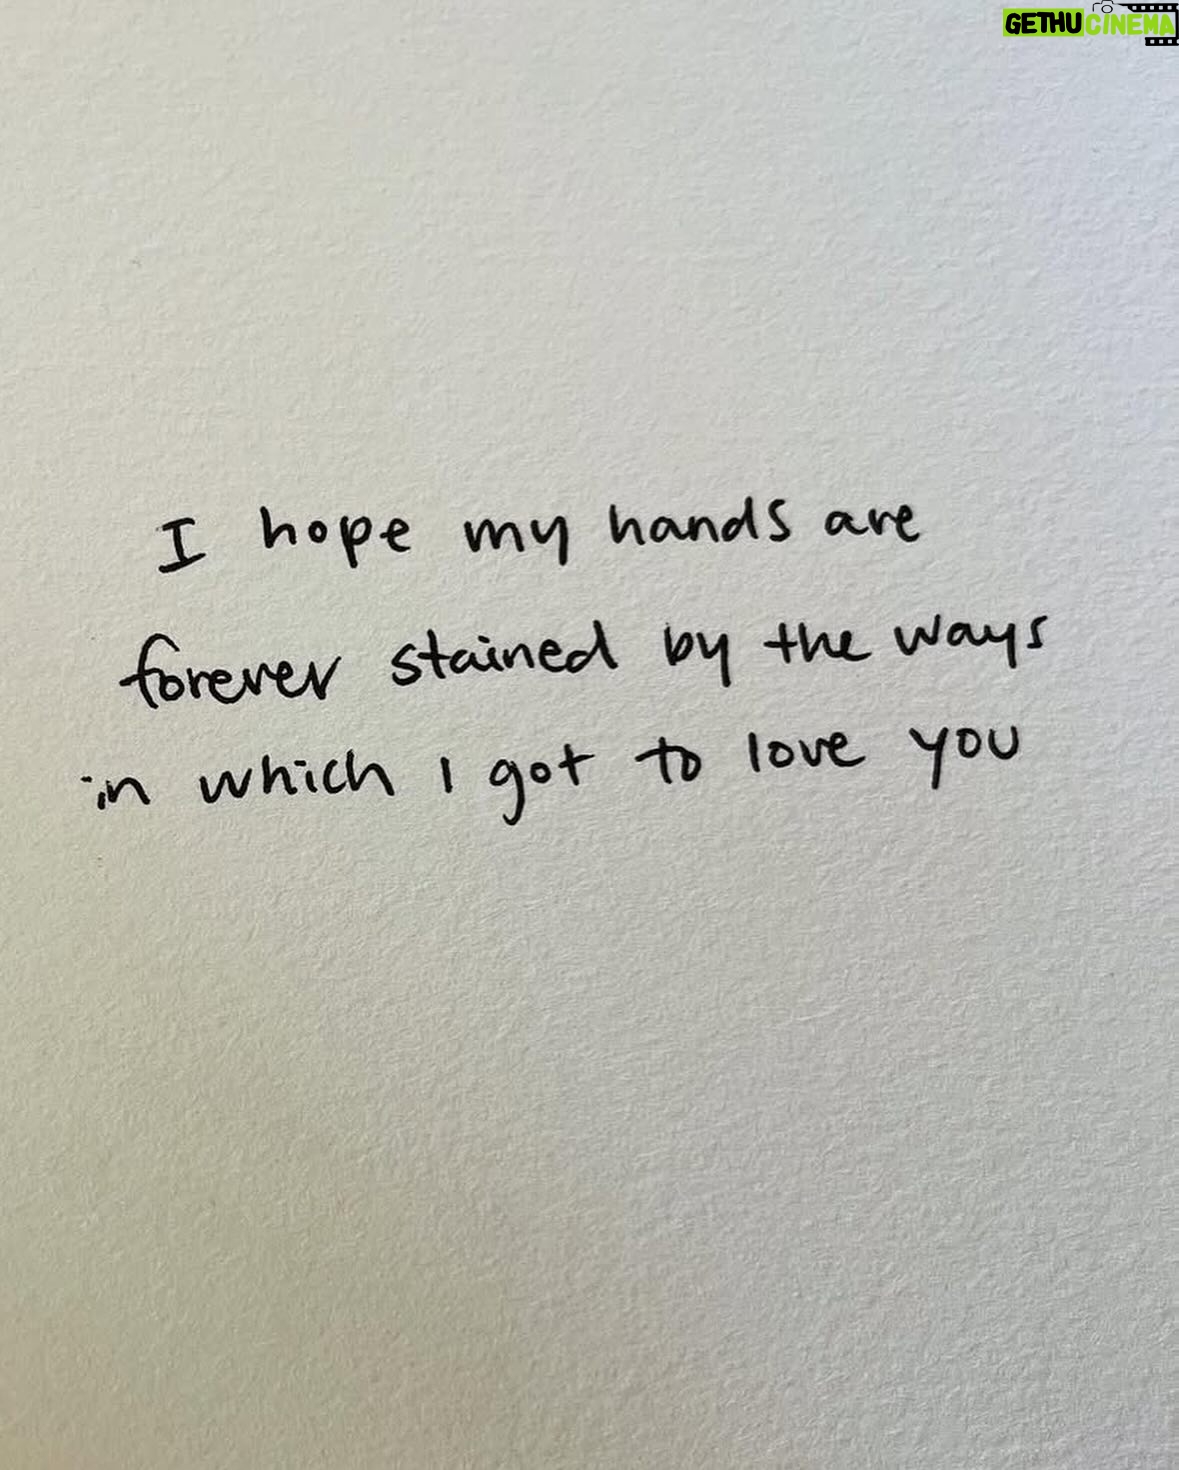 GETHUCINEMA
I hope my hands are
forever stained by the ways
in which I got to love you